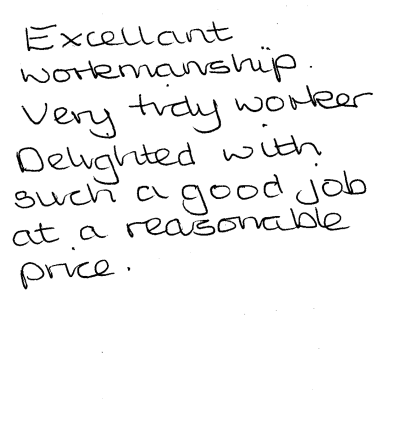 Excellant
workmanship.
Very tidy worker
Delighted with
such a good job
at a reasonable
price.